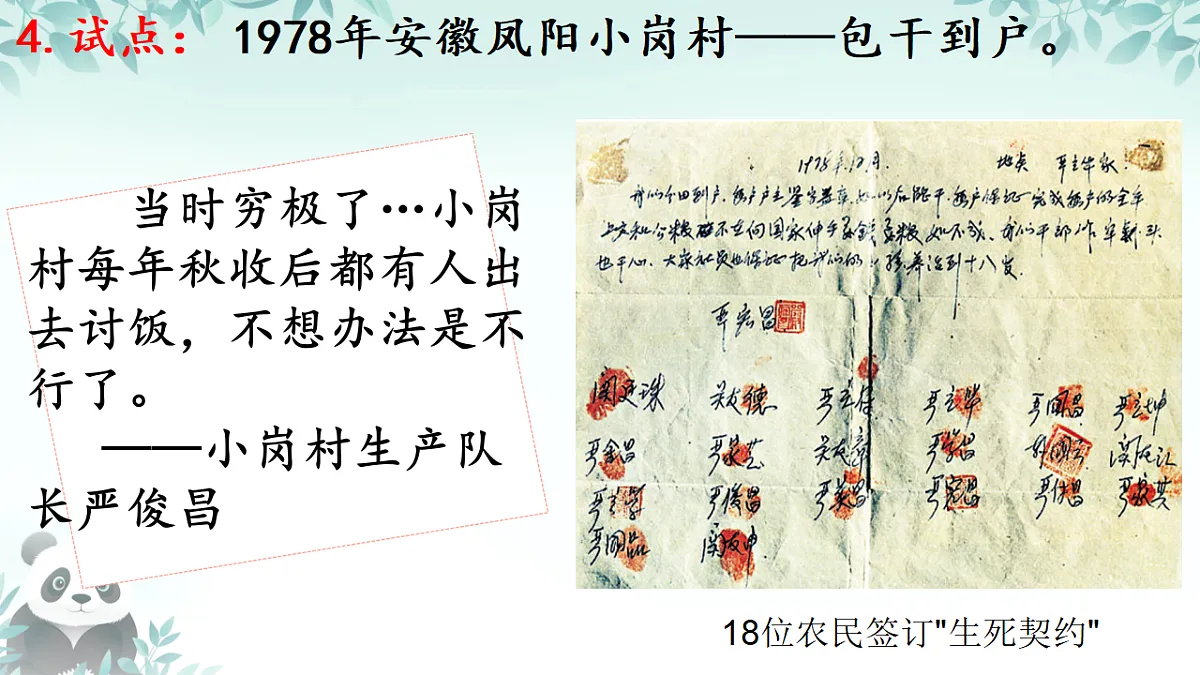 4. 试点： 1978年安徽凤阳小岗村——包干到户。
当时穷极了…小岗
村每年秋收后都有人出
去讨饭，不想办法是不
行了。
——小岗村生产队
长严俊昌
1978年12月. 地点 严立华家
我们分田到户，每户户主签字盖章，如以后能干，每户保证完成每户的全年
上交和公粮，不在向国家伸手要钱要粮，如不成，我们干部作牢剎头
也干心，大家社员也保证把我们的小孩养活到十八岁.
严宏昌
关友德 严立付 严立华 严国昌 严立坤
严金昌 严家芝 关友章 严学昌 韩国云 关友江
严立学 严俊昌 严美昌 严宏昌 严付昌 严家其
严国品 关友申
18位农民签订"生死契约"